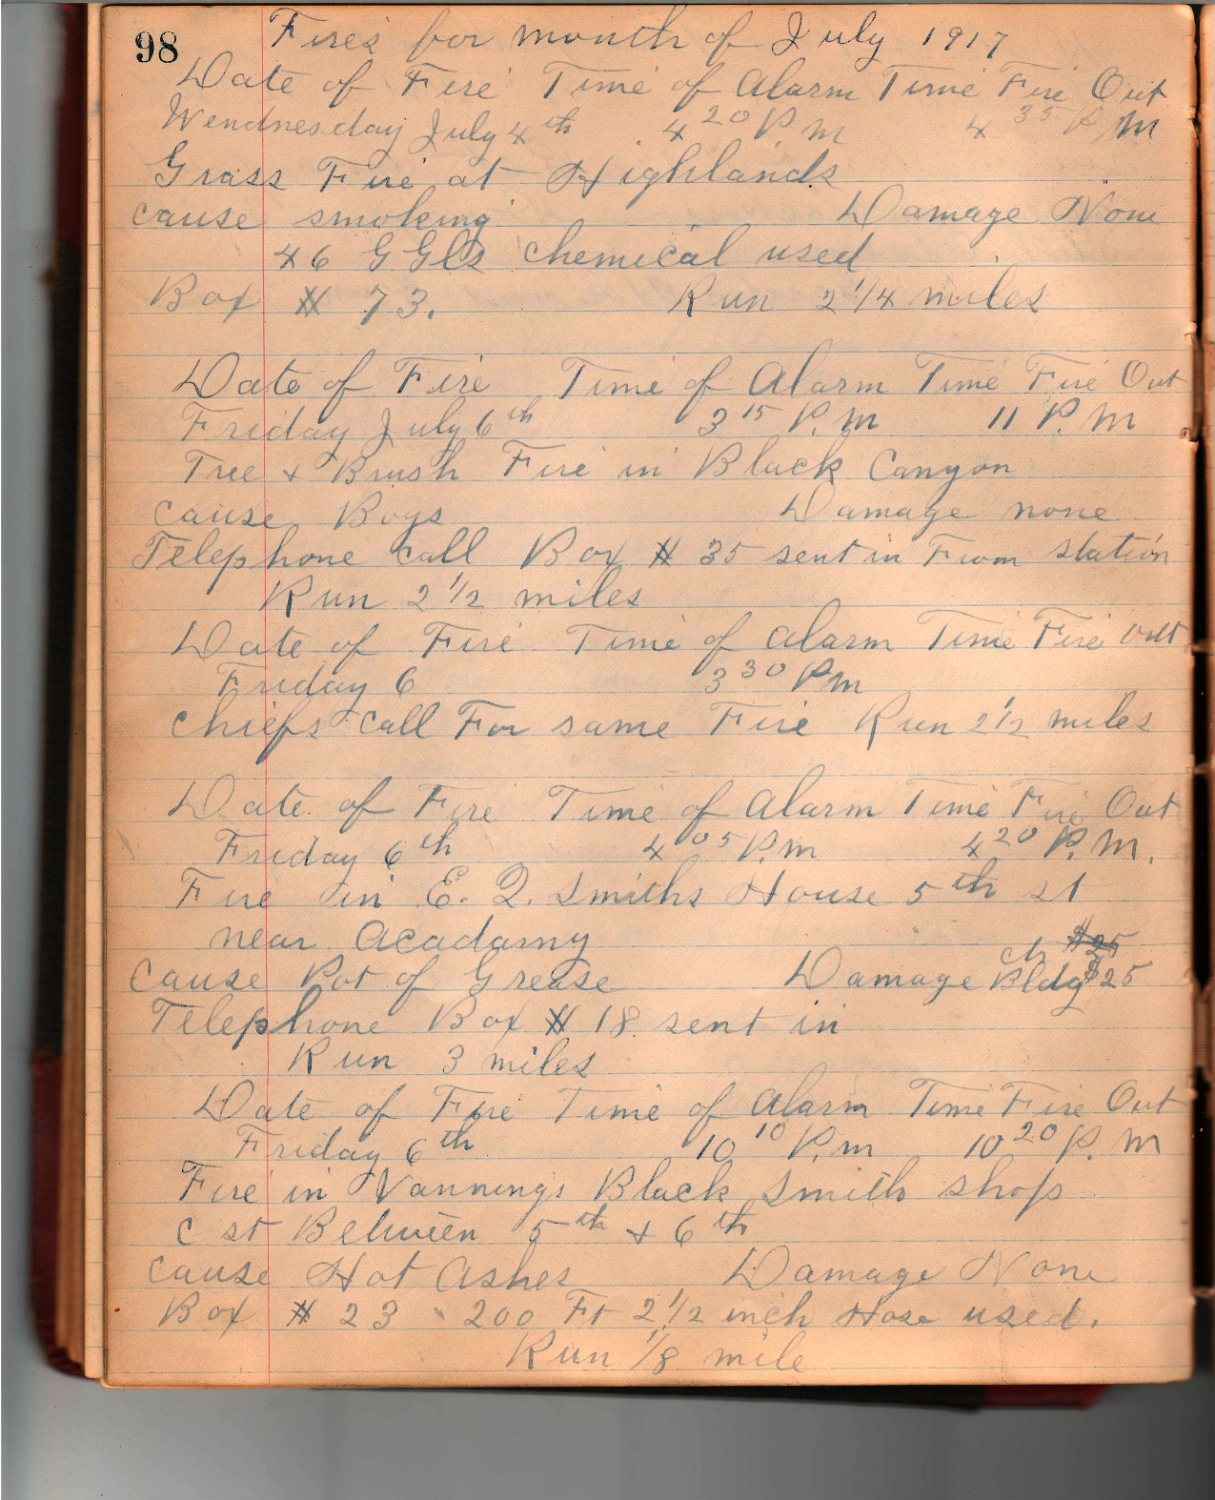 98
Fires for month of July 1917
Date of Fire Time of Alarm Time Fire Out
Wendnesday July 4th 4 20 P m 4 35 P m
Grass Fire at Highlands
cause smoking Damage None
46 G Gls chemical used
Box # 73. Run 2 1/4 miles
Date of Fire Time of Alarm Time Fire Out
Friday July 6th 3 15 P. m 11 P. m
Tree + Brush Fire in Black Canyon
cause Boys Damage none
Telephone call Box # 35 sent in From station
Run 2 1/2 miles
Date of Fire Time of alarm Time Fire out
Friday 6 3 30 P m
chiefs call For same Fire Run 2 1/2 miles
Date of Fire Time of Alarm Time Fire Out
Friday 6th 4 05 P. m 4 20 P. M.
Fire in E. Q. Smiths House 5th st
near Acadamy
$25
Cause Pot of Grease Damage Bldg $25
Telephone Box # 18 sent in
Run 3 miles
Date of Fire Time of Alarm Time Fire Out
Friday 6th 10 10 P. m 10 20 P. m
Fire in Vannings Black Smith shop
C st Between 5th + 6th
cause Hot Ashes Damage None
Box # 23 200 Ft 2 1/2 inch Hose used.
Run 1/8 mile